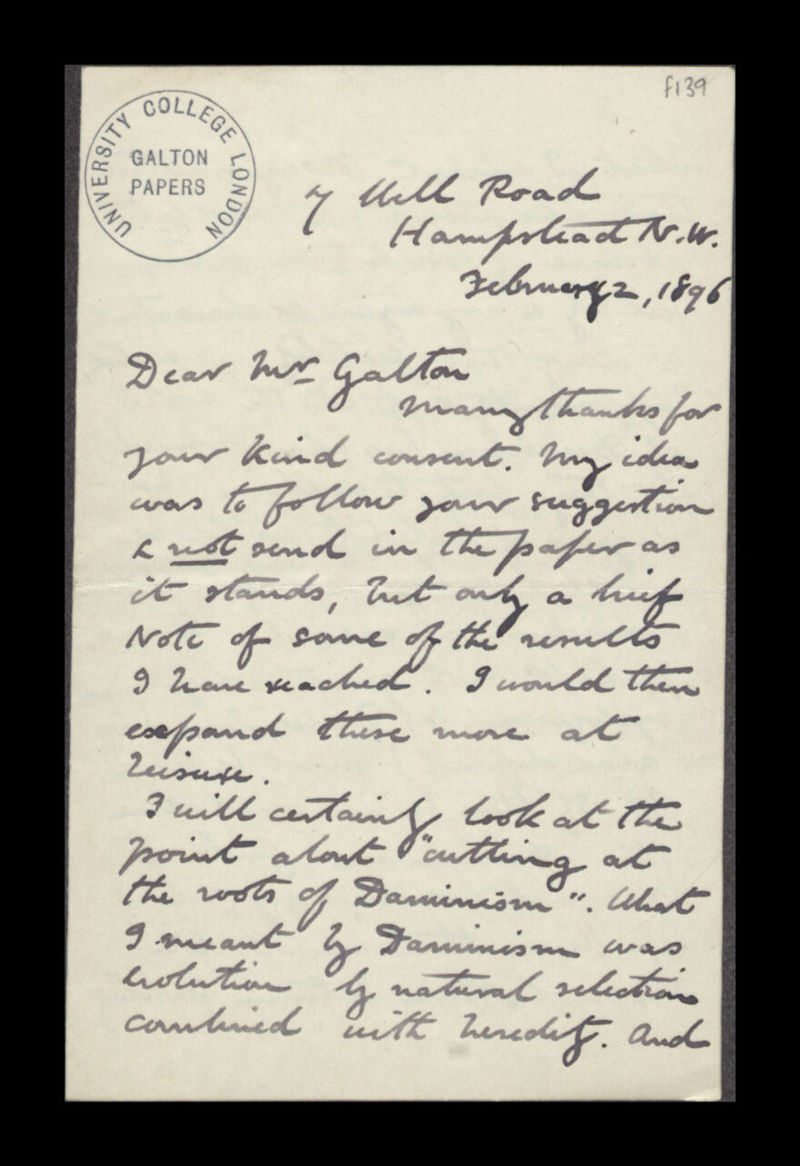 f139
UNIVERSITY COLLEGE LONDON
GALTON
PAPERS
7 Well Road
Hampstead N.W.
February 2, 1896
Dear Mr Galton
Many thanks for
your kind consent. My idea
was to follow your suggestion
& not send in the paper as
it stands, but only a brief
Note of some of the results
I have reached. I would then
expand these more at
leisure.
I will certainly look at the
point about "cutting at
the roots of Darwinism". What
I meant by Darwinism was
evolution by natural selection
combined with heredity. And